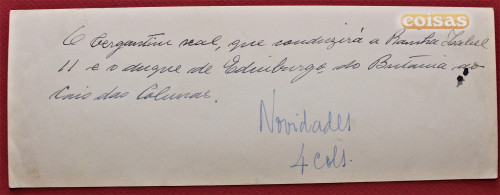 coisas
O bergantim real, que conduzirá a Rainha Isabel
II e o duque de Edinburgo do Britania ao
Cais das Colunas.
Novidades
4 cols.